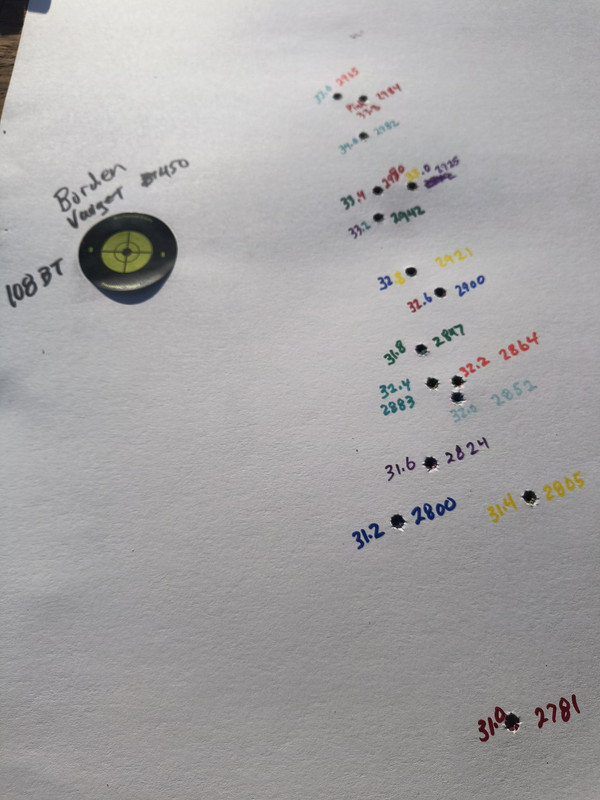 Borden
Varget Br450
108 BT
2965
2984
34.0 2982
33.4 2980
33.0 2925
33.2 2942
32.8 2921
32.6 2900
31.8 2847
32.2 2864
32.4
2883
32.0 2852
31.6 2824
31.4 2805
31.2 2800
31.0 2781